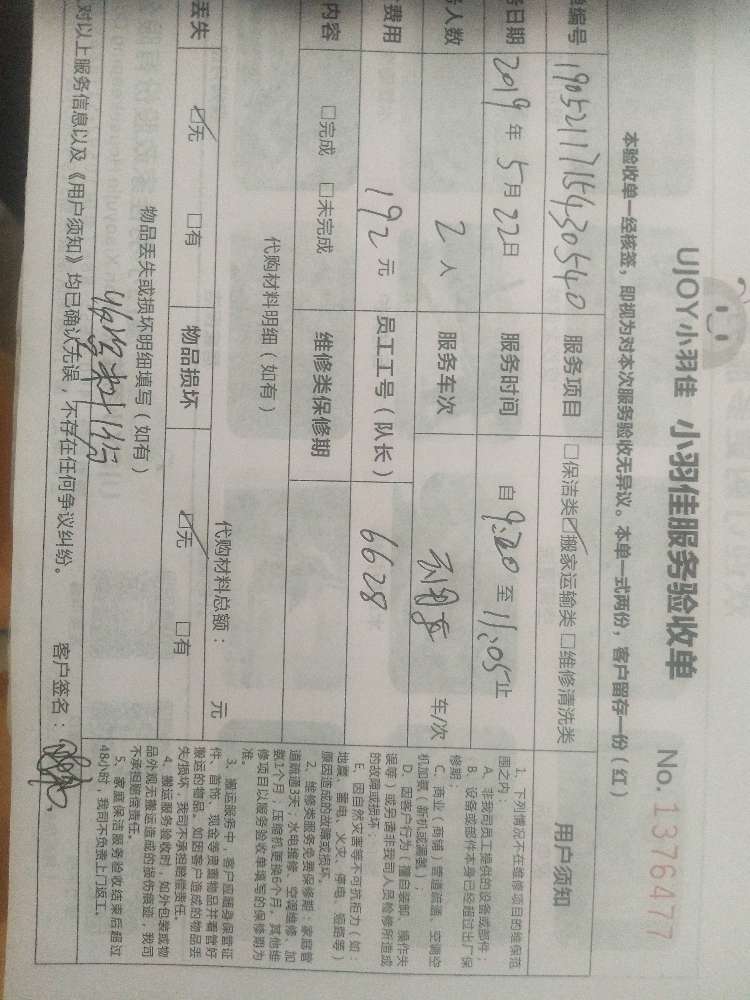 UJOY小羽佳 小羽佳服务验收单 No.1376477
本验收单一经核签，即视为对本次服务验收无异议。本单一式两份，客户留存一份（红）
编号 190521171543540540 服务项目 □保洁类☑搬家运输类□维修清洗类
日期 2019年5月22日 服务时间 自9:20至11:05止
人数 2人 服务车次 车/次
费用 192元 员工工号（队长） 6628
内容 □完成 □未完成 维修类保修期
代购材料明细（如有）
代购材料总额： 元
丢失 ☑无 □有 物品损坏 ☑无 □有
物品丢失或损坏明细填写（如有）
对以上服务信息以及《用户须知》均已确认无误，不存在任何争议纠纷。
客户签名：
用户须知
1、下列情况不在维修项目的维保范
围之内：
A、非我司员工提供的设备或部件；
B、设备或部件本身已经超过出厂保
修期；
C、商业（商铺）管道疏通、空调空
机加氟（新机或漏氟）；
D、因客户行为（擅自装卸、操作失
误等）或另请非我司人员检修所造成
的故障或损坏；
E、因自然灾害等不可抗拒力（如：
地震、雷电、火灾、停电、短路等）
原因造成的故障或损坏。
2、维修类服务免费保修期：家庭管
道疏通3天；水电维修、空调维修、加
氨1个月；压缩机更换6个月，其他维
修项目以服务验收单填写的保修期为
准。
3、搬运服务中，客户应随身保管证
件、首饰、现金等贵重物品并看管好
搬运的物品。如因客户造成的物品丢
失/损坏，我司不承担赔偿责任。
4、搬运服务验收时，如外包装或物
品外观无搬运造成的损伤痕迹，我司
不承担赔偿责任。
5、家庭保洁服务验收结束后超过
48小时，我司不负责上门返工。